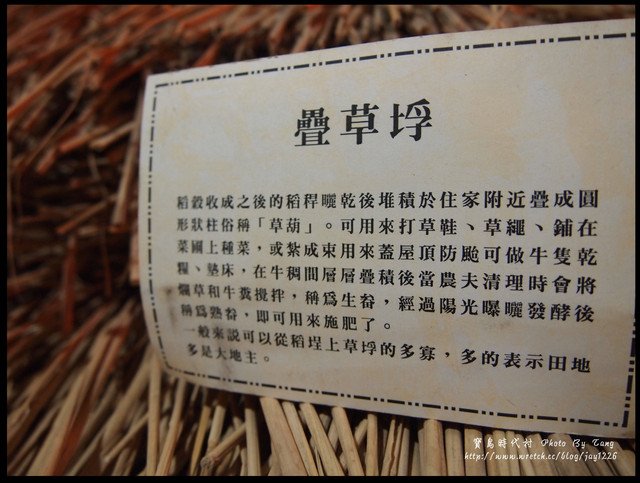 疊草垺
稻穀收成之後的稻稈曬乾後堆積於住家附近疊成圓
形狀柱俗稱「草葫」。可用來打草鞋、草繩、鋪在
菜圃上種菜，或紮成束用來蓋屋頂防颱可做牛隻乾
糧、墊床，在牛稠間層層疊積後當農夫清理時會將
爛草和牛糞攪拌，稱為生畚，經過陽光曝曬發酵後
稱為熟畚，即可用來施肥了。
一般來說可以從稻埕上草垺的多寡，多的表示田地
多是大地主。
寶島時代村 Photo By Tang
http://www.wretch.cc/blog/jay1226